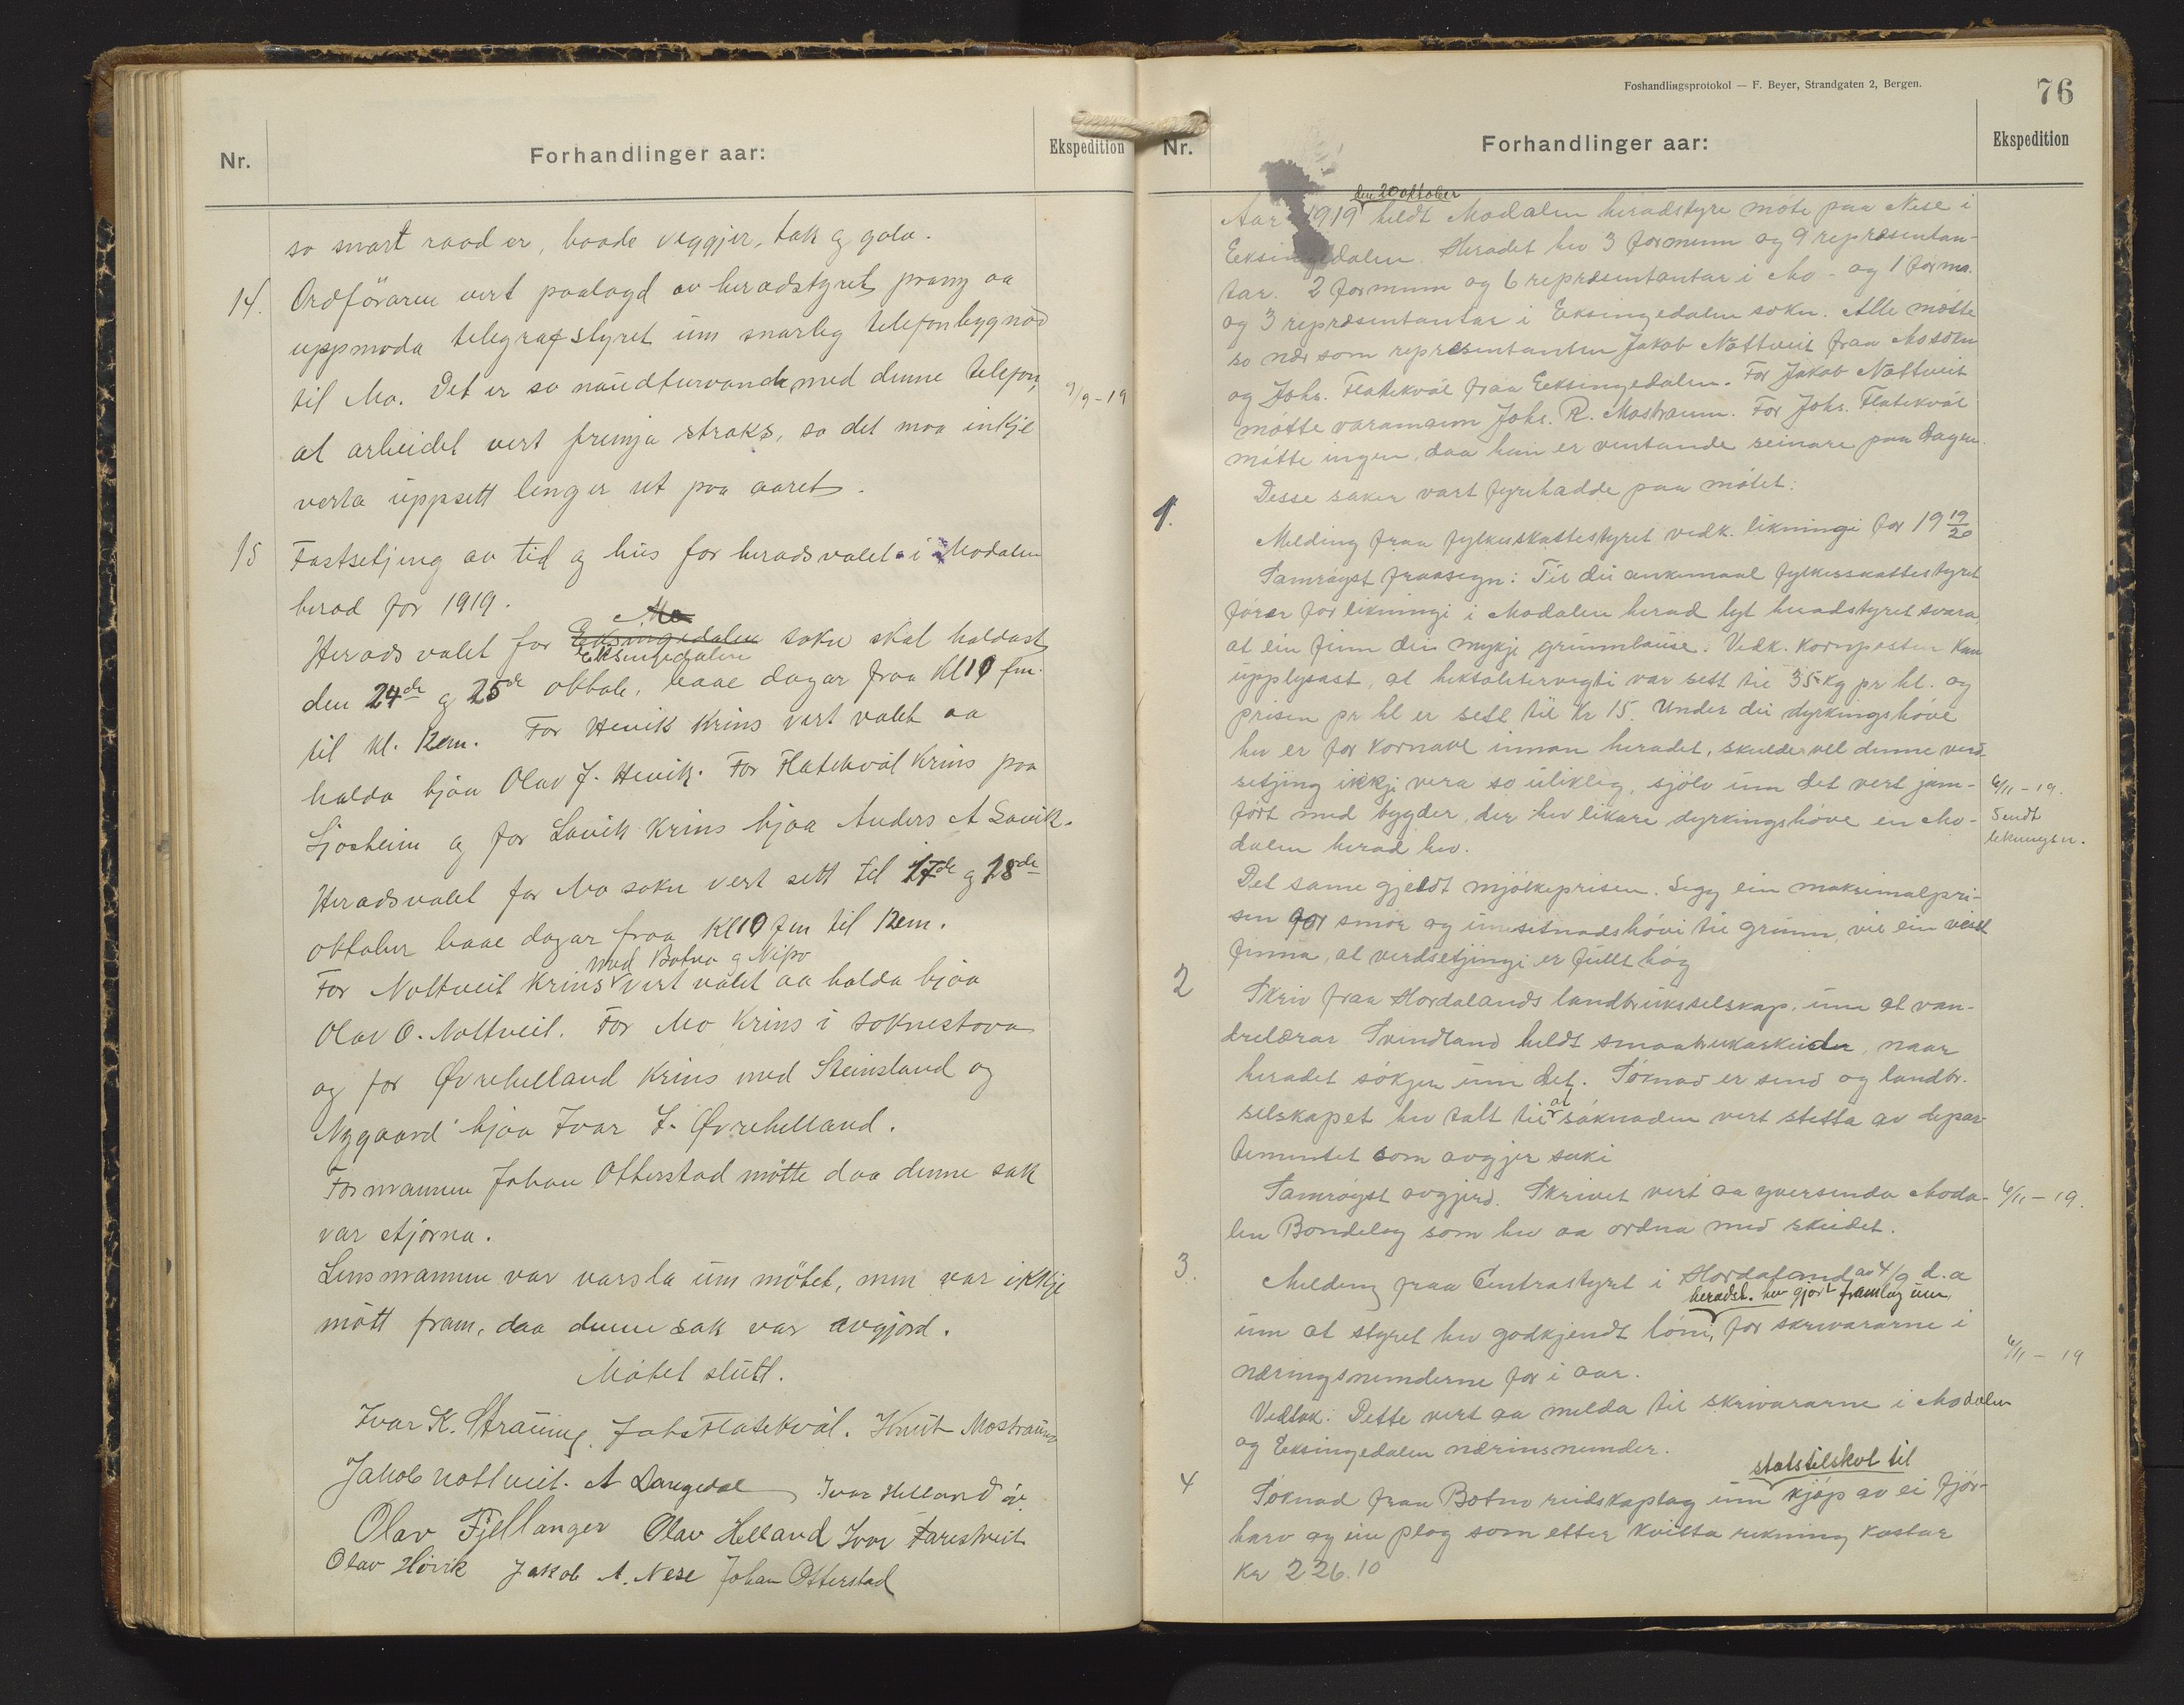 Nr.
Forhandlinger aar:
Ekspedition
so snart raad er, baade veggjer, tak og golv.
14. Ordföraren vert paalagd av heradstyret paany aa
uppmoda telegrafstyret um snarleg telefonbygnad
til Mo. Det er so naudturvande med denne telefon, 9/9-19
at arbeidet vert fremja straks, so det maa inkje
verta uppsett lenger ut paa aaret.
15 Fastsetjing av tid og hus for heradsvalet i Modalen
herad for 1919.
Mo
Heradsvalet for Eksingedalen sokn skal haldast
Eksingedalen
den 24de og 25de oktob. baae dagar fraa Kl 10 fm.
til kl. 12em. For Høvik Krins vert valet aa
halda hjaa Olav J. Høvik. For Flatekvål Krins paa
Sjosheim og for Lavik Krins hjaa Anders A Lavik.
Heradsvalet for Mo sokn vert sett til 17de og 18de
oktober baae dagar fraa Kl 10 fm til 12em.
med Botna og Nipo
For Nottveit Krins vert valet aa halda hjaa
Olav O. Nottveit. For Mo Krins i soknestova
og for Øvrehelland Krins med Steinsland og
Nygaard hjaa Ivar I. Øvrehelland.
Formannen Johan Otterstad mötte daa denne sak
var avgjorna.
Lensmannen var varsla um mötet, men var ikkje
mött fram, daa denne sak var avgjord.
Mötet slutt.
Ivar K. Straume. Johs Flatekvål. Knut Mostraum
Jakob Nottveit. A Dangedal Ivar Helland
Olav Fjellanger Olav Helland Ivar Farestveit
Olav Høvik Jakob A. Nese Johan Otterstad
Foshandlingsprotokol — F. Beyer, Strandgaten 2, Bergen.
76
Nr.
Forhandlinger aar:
Ekspedition
den 20 oktober
Aar 1919 heldt Modalen heradstyre möte paa Nese i
Eeksingedalen. Heradet hev 3 formenn og 9 representan-
tar. 2 formenn og 6 representantar i Mo- og 1 forma.
og 3 representantar i Eeksingedalen sokn. Alle mötte
so nær som representanten Jakob Nottveit fraa Mo sokn
og Johs. Flatekvål fraa Eeksingedalen. For Jakob Nottveit
mötte varamann Johs. R. Mostraum. For Johs. Flatekvål
mötte ingen, daa han er ventande seinare paa dagen.
Desse saker vart fyrehadde paa mötet:
1. Melding fraa fylkesskattestyret vedk. likningi for 19 19/20
Samröyst fraasegn: Til dei ankemaal fylkesskattestyret
förer for likningi i Modalen herad lyt heradstyret svara,
at ein finn dei mykje grunnlause. Vedk. Kornposten kan
upplysast, at hektoletervegti var sett til 35 kg pr hl. og
prisen pr hl er sett til Kr 15. Under dei dyrkingshöve
hev er for kornavl innan heradet, skulde vel denne verd-
setjing ikkje vera so ulikleg, sjölv um det vert jam-
fört med bygder, der hev likare dyrkingshöve en Mo-
dalen herad hev.
6/11-19.
Sendt
likningsn.
Det same gjeldt mjölkeprisen. Legg ein maksimalpri-
sen for smör og umsetnadshövi til grunn, vil ein visst
finna, at verdsetjingi er fullt höy
2 Skriv fraa Hordalands landbruksselskap, um at van-
drelærar Svindland heldt smaabrukarskeider, naar
heradet sökjer um det. Söknad er send og landbr.
selskapet hev talt til at söknaden vert stetta av depar-
tementet som avgjer saki
Samröyst avgjerd. Skrivet vert aa yversenda Moda- 6/11-19.
len Bondelag som hev aa ordna med skeidet.
3. Melding fraa Centrastyret i Hordaland av 4/9 d.a
heradst. hev gjort framlegg um,
um at styret hev godkjendt löni, for skrivararne i
næringsnemderne for i aar.
6/11-19
Vedtak: Dette vert aa melda til skrivararne i Modalen
og Eeksingedalen næringsnemder.
statstilskot til
4 Söknad fraa Botno reidskaplag um kjöp av ei fjör-
harv og ein plog som etter kvitta rekning kostar
Kr 226.10